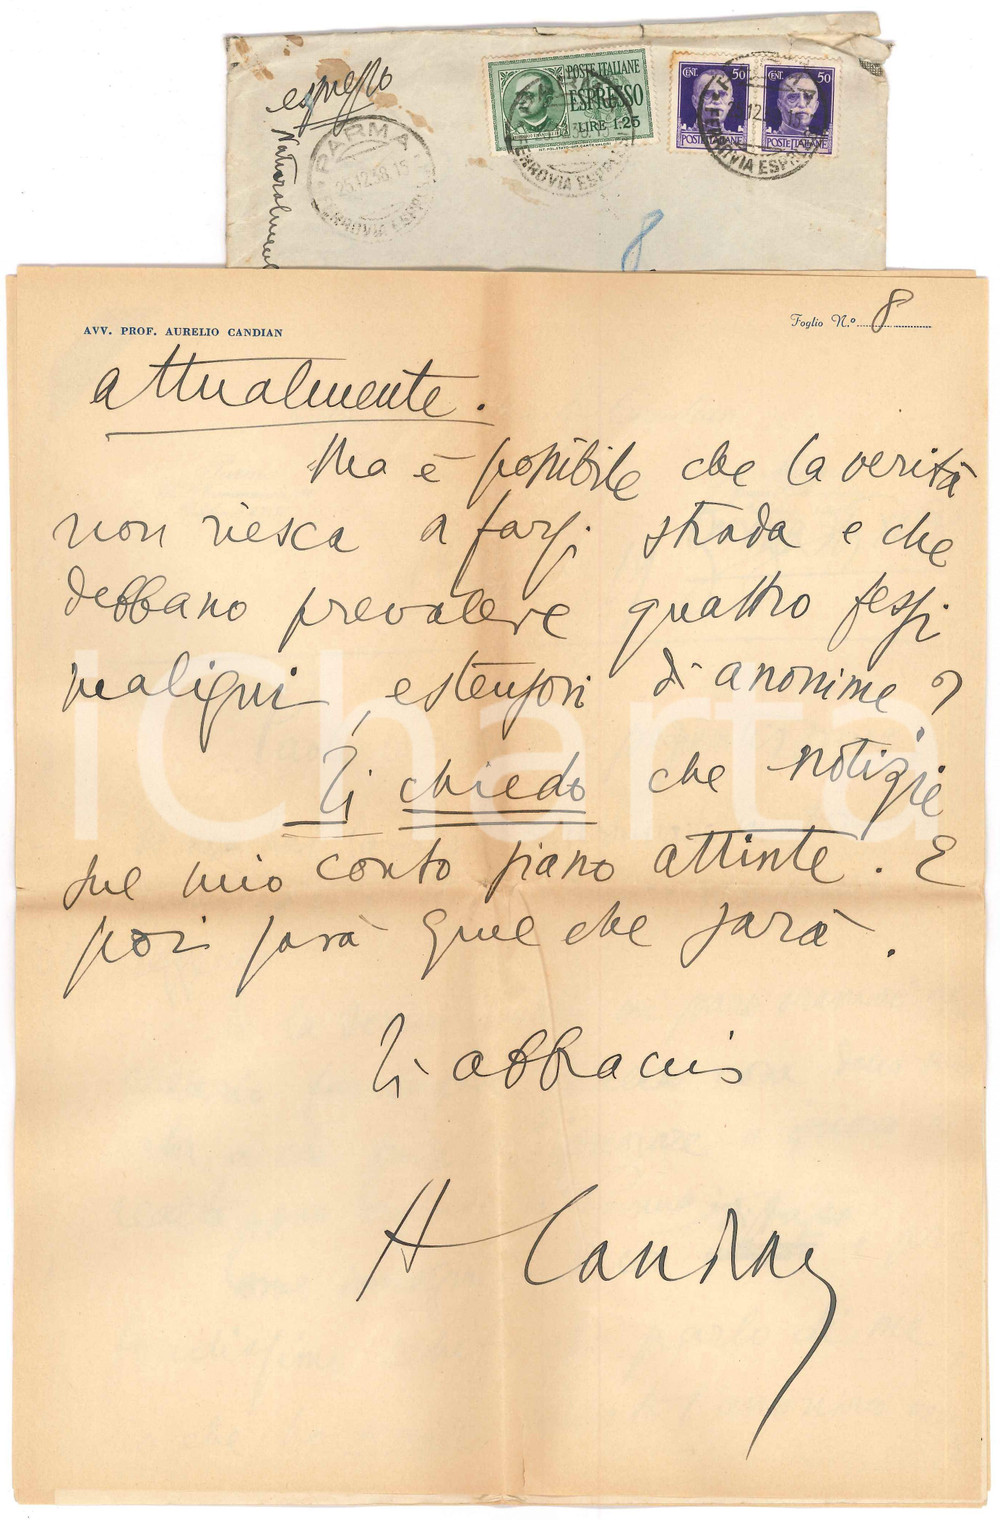 espresso
Naturalmente
PARMA
26.12.38.15
FERROVIA ESPRESSI
POSTE ITALIANE
ESPRESSO
LIRE 1,25
FERROVIA ESPR
CENT. 50
50
POSTE ITALIANE
POSTE ITALIANE
FERROVIA ESPR
8
AVV. PROF. AURELIO CANDIAN
Foglio N.º 8
attualmente.
Ma è possibile che la verità
non riesca a farsi strada e che
debbano prevalere quattro fessi
maligni, estensori di anonime?
Ti chiedo che notizie
sul mio conto siano attinte. E
poi sarà quel che sarà.
Ti abbraccio
A Candian
iCharta